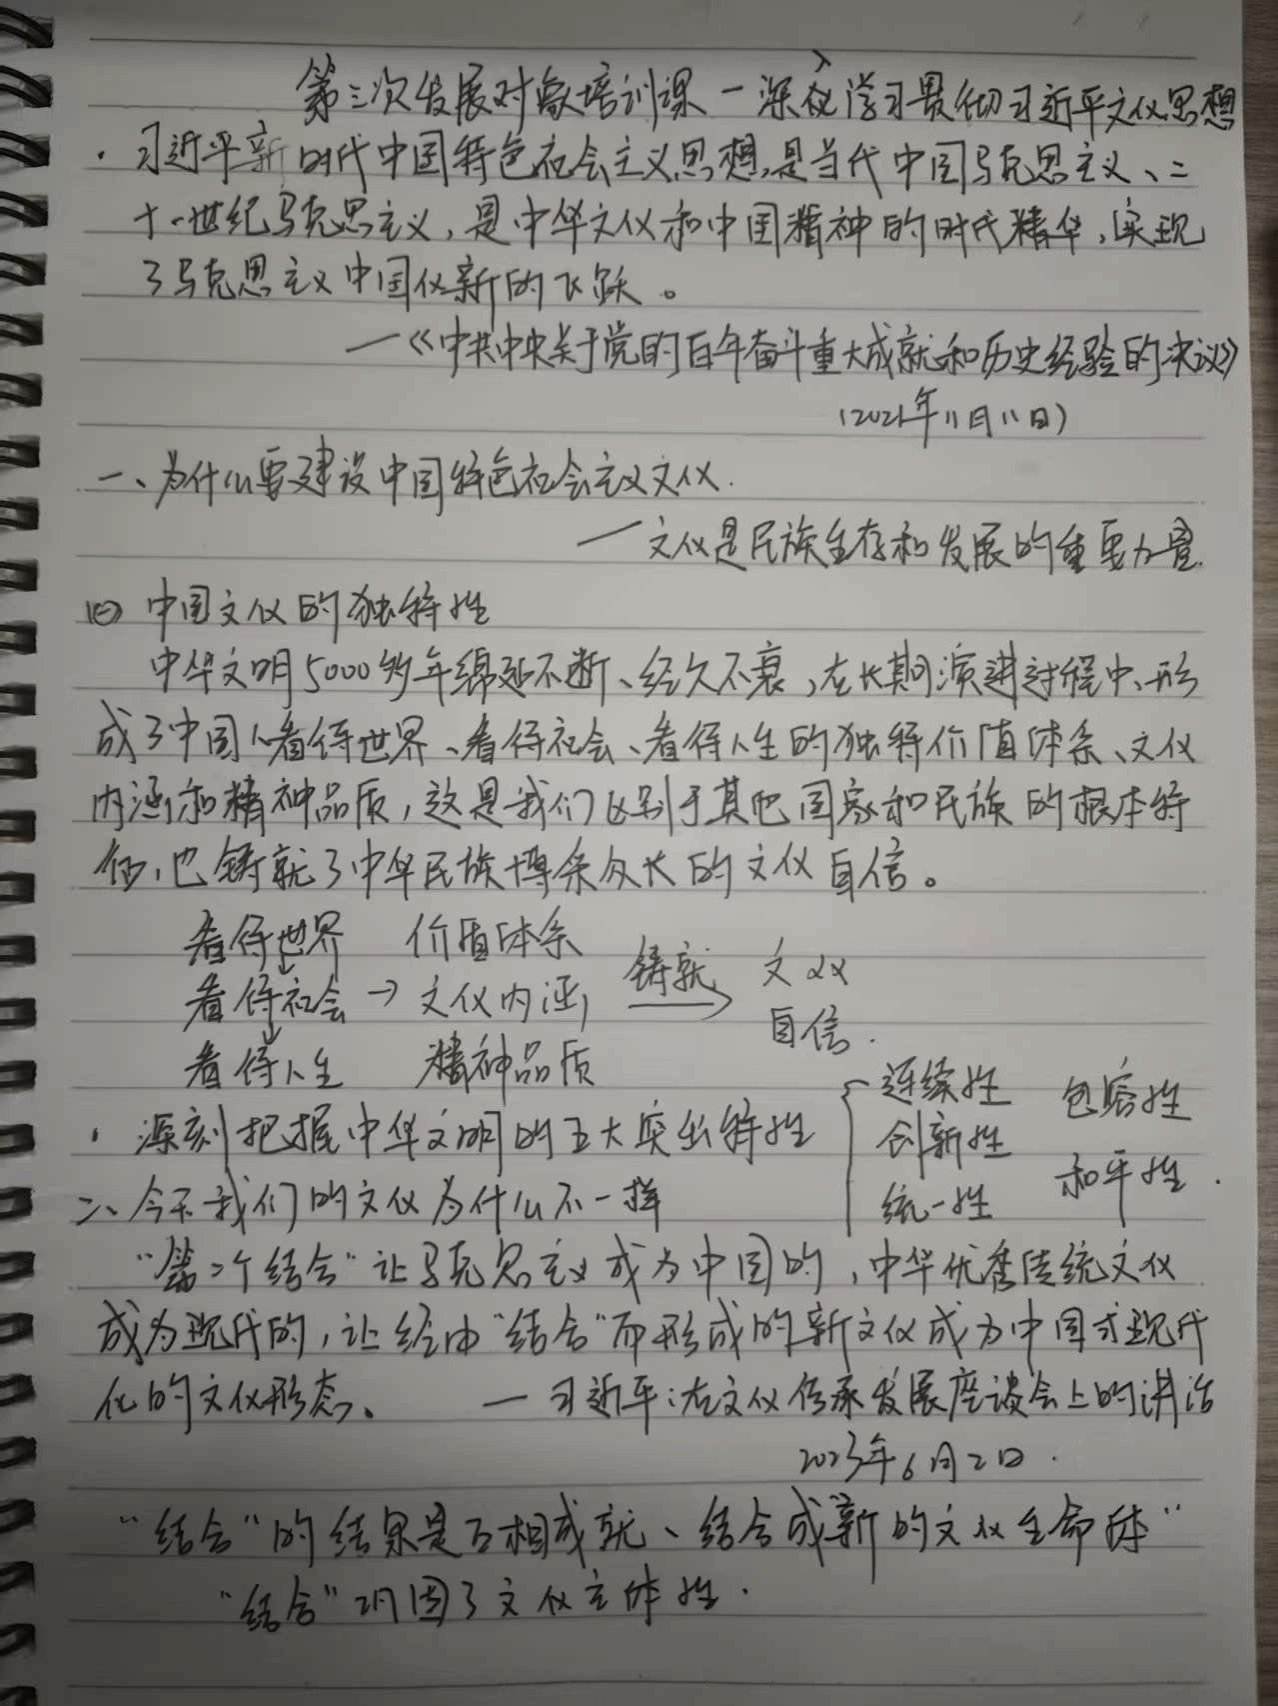 第三次发展对象培训课 — 深入学习贯彻习近平文化思想
· 习近平新时代中国特色社会主义思想,是当代中国马克思主义、二
十一世纪马克思主义,是中华文化和中国精神的时代精华,实现
了马克思主义中国化新的飞跃。
—《中共中央关于党的百年奋斗重大成就和历史经验的决议》
(2021年11月11日)
一、为什么要建设中国特色社会主义文化.
— 文化是民族生存和发展的重要力量.
(一) 中国文化的独特性
中华文明5000多年绵延不断、经久不衰,在长期演进过程中、形
成了中国人看待世界、看待社会、看待人生的独特价值体系、文化
内涵和精神品质,这是我们区别于其他国家和民族的根本特
征,也铸就了中华民族博采众长的文化自信。
看待世界 价值体系
看待社会 → 文化内涵 铸就 → 文化
自信.
看待人生 精神品质
· 深刻把握中华文明的五大突出特性 { 连续性 包容性
创新性 和平性.
统一性
二、今天我们的文化为什么不一样
“第二个结合”让马克思主义成为中国的,中华优秀传统文化
成为现代的,让经由“结合”而形成的新文化成为中国式现代
化的文化形态。 — 习近平:在文化传承发展座谈会上的讲话
2023年6月2日.
“结合”的结果是互相成就、结合成“新的文化生命体”
“结合”巩固了文化主体性.